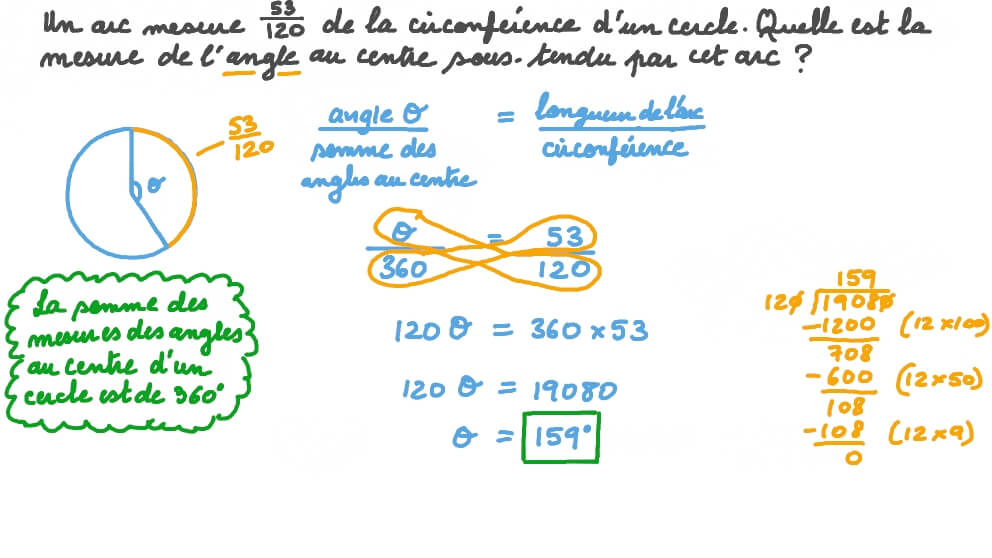 Un arc mesure 53/120 de la circonférence d'un cercle. Quelle est la
mesure de l'angle au centre sous-tendu par cet arc ?
53/120
θ
angle θ / somme des angles au centre = longueur de l'arc / circonférence
θ/360 = 53/120
120 θ = 360 × 53
120 θ = 19080
θ = 159°
La somme des
mesures des angles
au centre d'un
cercle est de 360°
159
120 19080
-1200 (12 × 100)
708
-600 (12 × 50)
108
-108 (12 × 9)
0